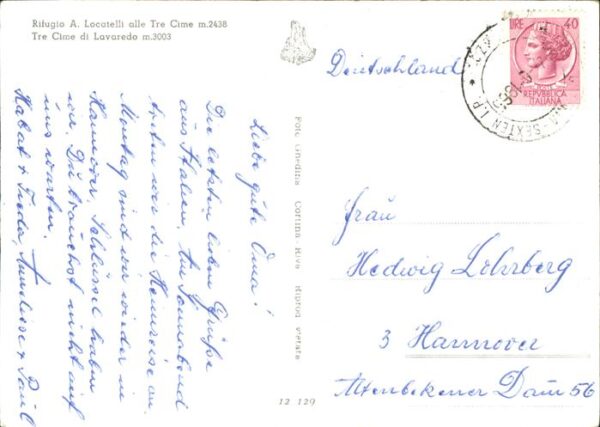 Rifugio A. Locatelli alle Tre Cime m.2438
Tre Cime di Lavaredo m.3003
Deutschland
LIRE 40
REPVBBLICA
ITALIANA
SEXTEN
Liebe gute Oma!
Die letzten lieben Grüße
aus Italien. Am Sonnabend
treten wir die Heimreise an.
Montag sind wir wieder in
Hannover. Schlüssel haben
wir. Du brauchst nicht auf
uns warten.
Frieda, Anneliese + Paul
Foto Ghedina Cortina - Riva Riprod. vietata
Frau
Hedwig Lehrberg
3 Hannover
Altenbekener Damm 56
12 129